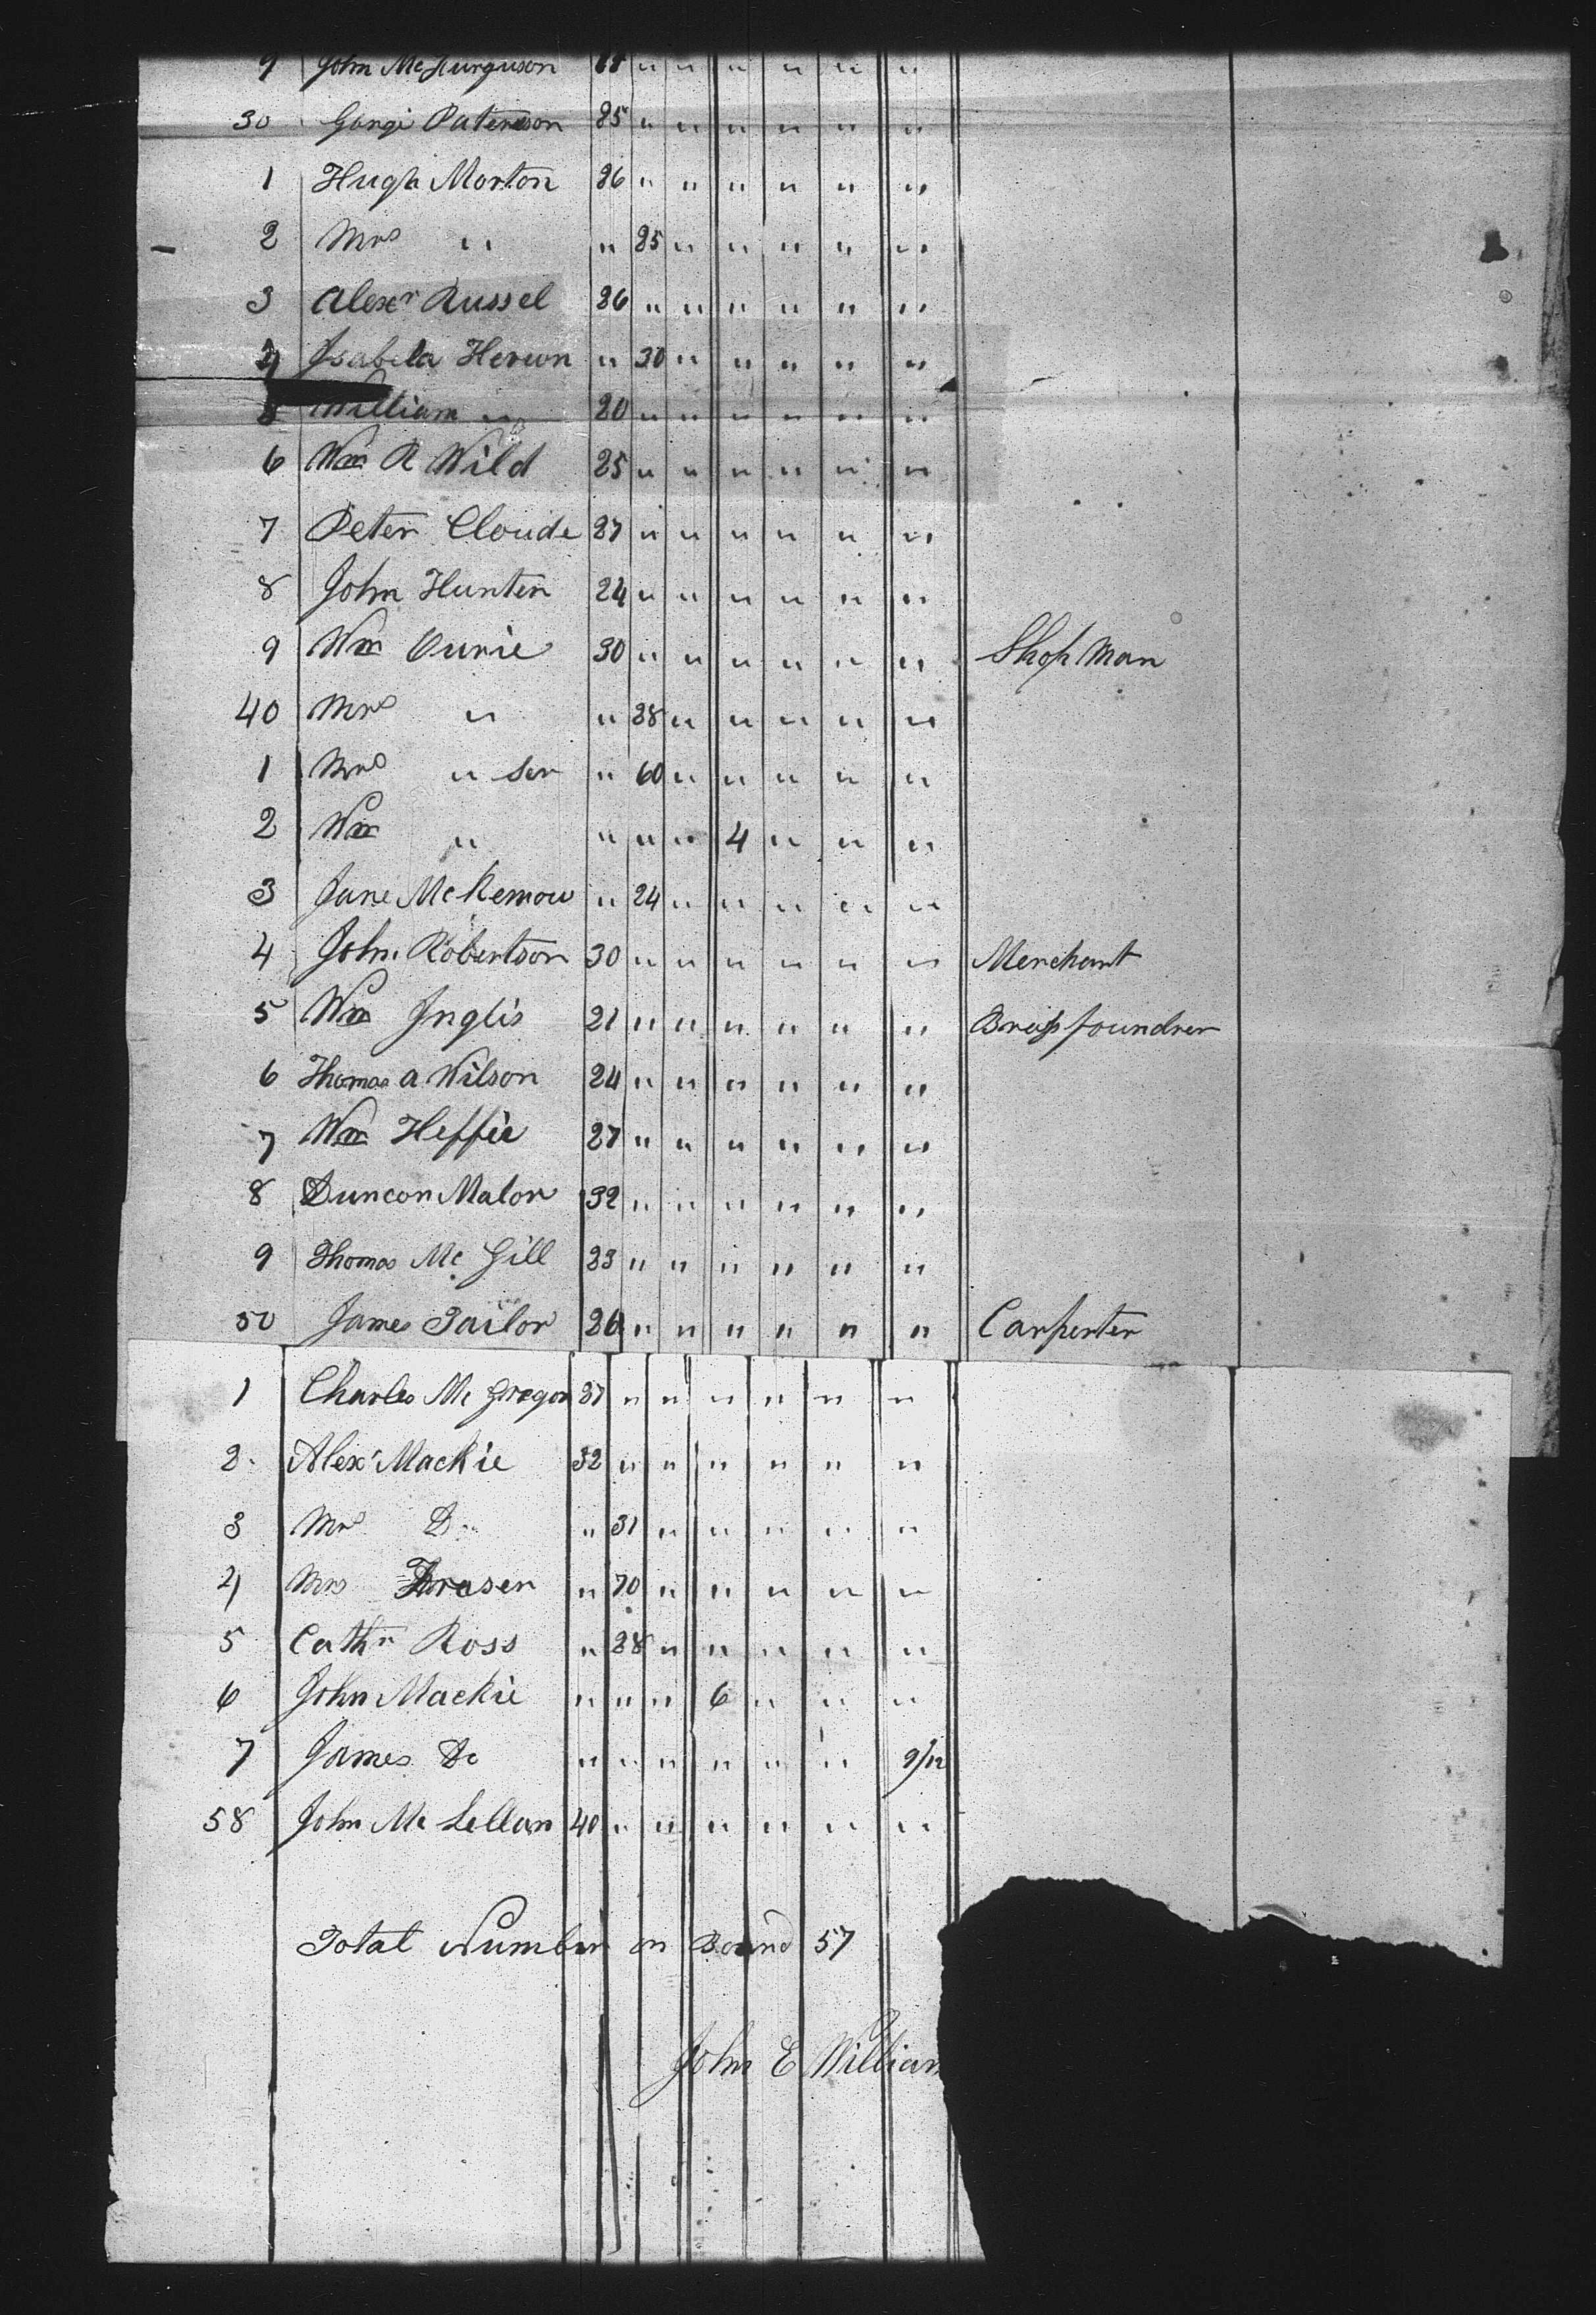 9 John McFurguson " " " " " "
30 Gorge Paterson 25 " " " " " "
1 Hugh Morton 26 " " " " " "
2 Mrs " " 25 " " " " "
3 Alexr Russel 26 " " " " " "
4 Isabela Heron " 30 " " " " "
William " 20 " " " " " "
6 Wm R Wild 25 " " " " " "
7 Peter Cloude 27 " " " " " "
8 John Hunter 24 " " " " " "
9 Wm Curie 30 " " " " " " Shop Man
40 Mrs " " 28 " " " " "
1 Mrs " Ser " 60 " " " " "
2 Wm " " " " 4 " " "
3 Jane McKemow " 24 " " " " "
4 John Robertson 30 " " " " " " Merchant
5 Wm Inglis 21 " " " " " " Brass foundrer
6 Thomas A Wilson 24 " " " " " "
7 Wm Heffie 27 " " " " " "
8 Duncon Malor 32 " " " " " "
9 Thomas Mc Gill 23 " " " " " "
50 James Tailor 26 " " " " " " Carpenter
1 Charles Mc Gregor 37 " " " " " "
2 Alexr Mackie 32 " " " " " "
3 Mrs Do " 31 " " " " "
4 Mrs Fraser " 70 " " " " "
5 Cathn Ross " 28 " " " " "
6 John Mackie " " " 6 " " "
7 James Do " " " " " " 9/12
58 John Mc Lellan 40 " " " " " "
Total Number on Board 57
John E William